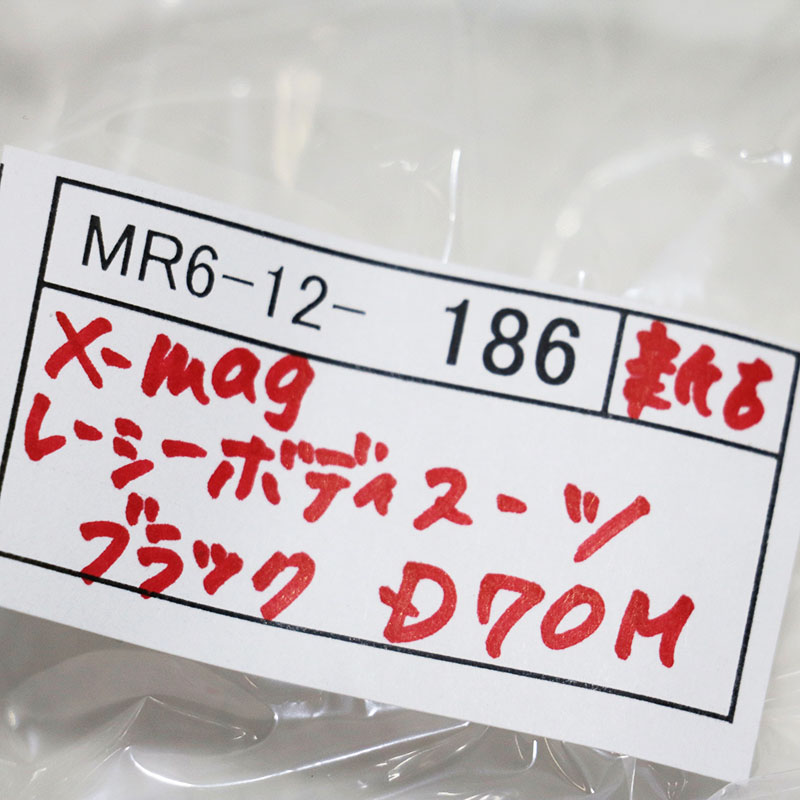 MR6-12- 186
X-mag
レーシーボディスーツ
ブラック D70M